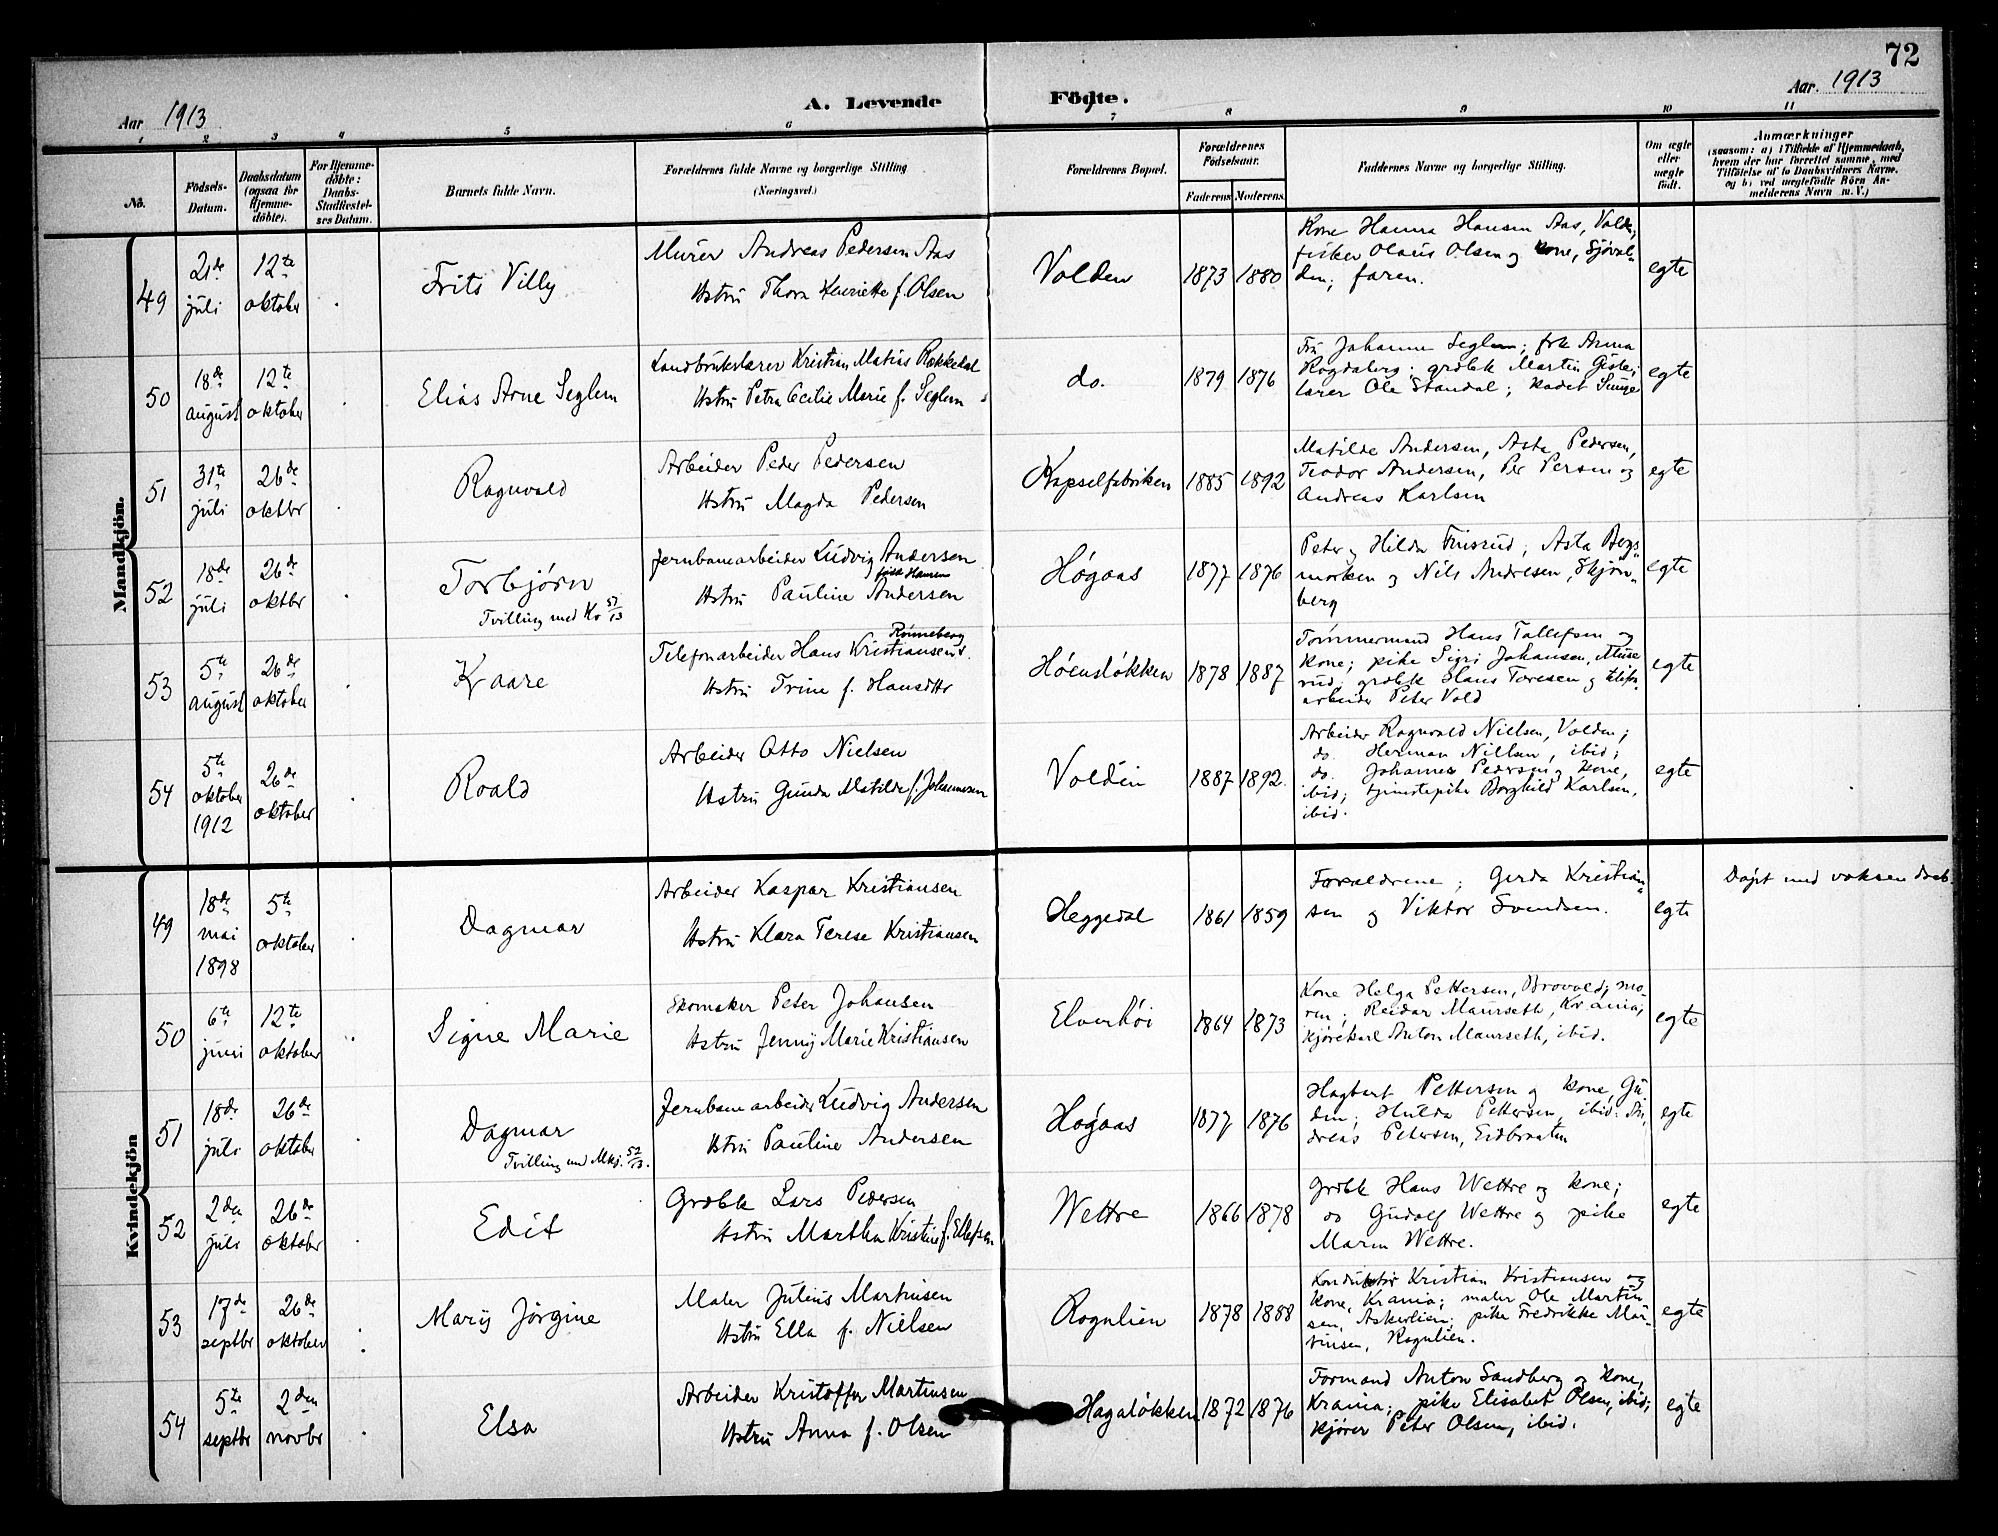 72
Aar 1913
A. Levende Födte.
Aar 1913
1 2 3 4 5 6 7 8 9 10 11
No.
Födsels-
Datum.
Daabsdatum
(ogsaa for
Hjemme-
döbte).
For Hjemme-
döbte:
Daabs-
Stadfæstel-
ses Datum.
Barnets fulde Navn.
Forældrenes fulde Navne og borgerlige Stilling
(Næringsvei.)
Forældrenes Bopæl.
Forældrenes
Födselsaar.
Faderens Moderens
Faddernes Navne og borgerlige Stilling.
Om ægte
eller
uægte
født.
Anmærkninger
(saasom: a) i Tilfælde af Hjemmedaab,
hvem der har forrettet samme, med
Tilföielse af to Daabsvidners Navne.
og b) ved uægtefödte Börn An-
melderens Navn m. V.)
Mandkjön.
49
21de
juli
12te
oktober
Frits Villy
Murer Andreas Pedersen Aas
Hstru Thora Henriette f. Olsen
Volden
1873 1880
Kone Hanna Hansen Aas, Volden;
fisker Olaus Olsen og kone, Sjøvol-
den; faren.
egte
50
18de
august
12te
oktober
Elias Arne Seglem
Landbrukslærer Kristian Matias Rækkedal
Hstru Petra Cecilie Marie f. Seglem
do.
1879 1876
Fru Johanne Seglem; frk Anna
grdbk Martin
lærer Ole Standal; kadet
egte
51
31te
juli
26de
oktbr
Ragnvald
Arbeider Peder Pedersen
Hstru Magda Pedersen
Kapselfabriken
1885 1892
Matilde Andersen, Asta Pedersen,
Teodor Andersen, Per Persen og
Andreas Karlsen
egte
52
18de
juli
26de
oktbr
Torbjørn
Tvilling med Kv 51/13
Jernbanearbeider Ludvig Andersen
født Hansen
Hstru Pauline Andersen
Høgaas
1877 1876
Peter og Hilda Finsrud; Asta Berg-
marken og Nils Andresen, Skjøn-
berg
egte
53
5te
august
26de
oktober
Kaare
Rønneberg
Telefonarbeider Hans Kristiansen
Hstru Trine f. Hansdtr
Høensløkken
1878 1887
Tømmermand Hans Tollefsen og
kone; pike Sigri Johansen, Muse
rud; grdbk Hans Toresen og telefon-
arbeider Peter Vold
egte
54
5te
oktober
1912
26de
oktober
Roald
Arbeider Otto Nielsen
Hstru Gunda Matilde f. Johannesen
Volden
1887 1892
Arbeider Ragnvald Nielsen, Volden;
do. Herman Nilsen, ibid;
do. Johannes Pedersen og kone,
ibid; tjenestepike Borghild Karlsen,
ibid.
egte
Kvindekjön
49
18de
mai
1898
5te
oktober
Dagmar
Arbeider Kaspar Kristiansen
Hstru Klara Terese Kristiansen
Heggedal
1861 1859
Forældrene; Gerda Kristian-
sen og Viktor Svendsen.
egte
Døpt med voksen daab.
50
6te
juni
12te
oktober
Signe Marie
Skomaker Peter Johansen
Hstru Jenny Marie Kristiansen
Elverhøi
1864 1873
Kone Helga Pettersen, Brovold; mo-
ren; Reidar Maurseth, Kr.ania;
kjørekarl Anton Maurseth, ibid.
egte
51
18de
juli
26de
oktober
Dagmar
Tvilling med Mkj. 52/13.
Jernbanearbeider Ludvig Andersen
Hstru Pauline Andersen
Høgaas
1877 1876
Hagbart Pettersen og kone, Gu-
den; Hulda Pettersen, ibid. An-
dreas Petersen, Eidbraaten
egte
52
2den
juli
26de
oktober
Edit
Grdbk Lars Pedersen
Hstru Martha Kristine f. Ellefsen
Wettre
1866 1878
Grdbk Hans Wettre og kone;
do Gudolf Wettre og pike
Maren Wettre.
egte
53
17de
septbr
26de
oktober
Mary Jørgine
Maler Julius Martinsen
Hstru Ella f. Nielsen
Rognlien
1878 1888
Konduktør Kristian Kristiansen og
kone, Krania; maler Ole Martin
sen, Askerlien; pike Fredrikke Mar-
tinsen, Rognlien.
egte
54
5te
septbr
2den
novbr
Elsa
Arbeider Kristoffer Martinsen
Hstru Anna f. Olsen
Hagaløkken
1872 1876
Formand Anton Sandberg og kone,
Krania; pike Elisabet Olsen, ibid;
kjører Peter Olsen, ibid.
egte